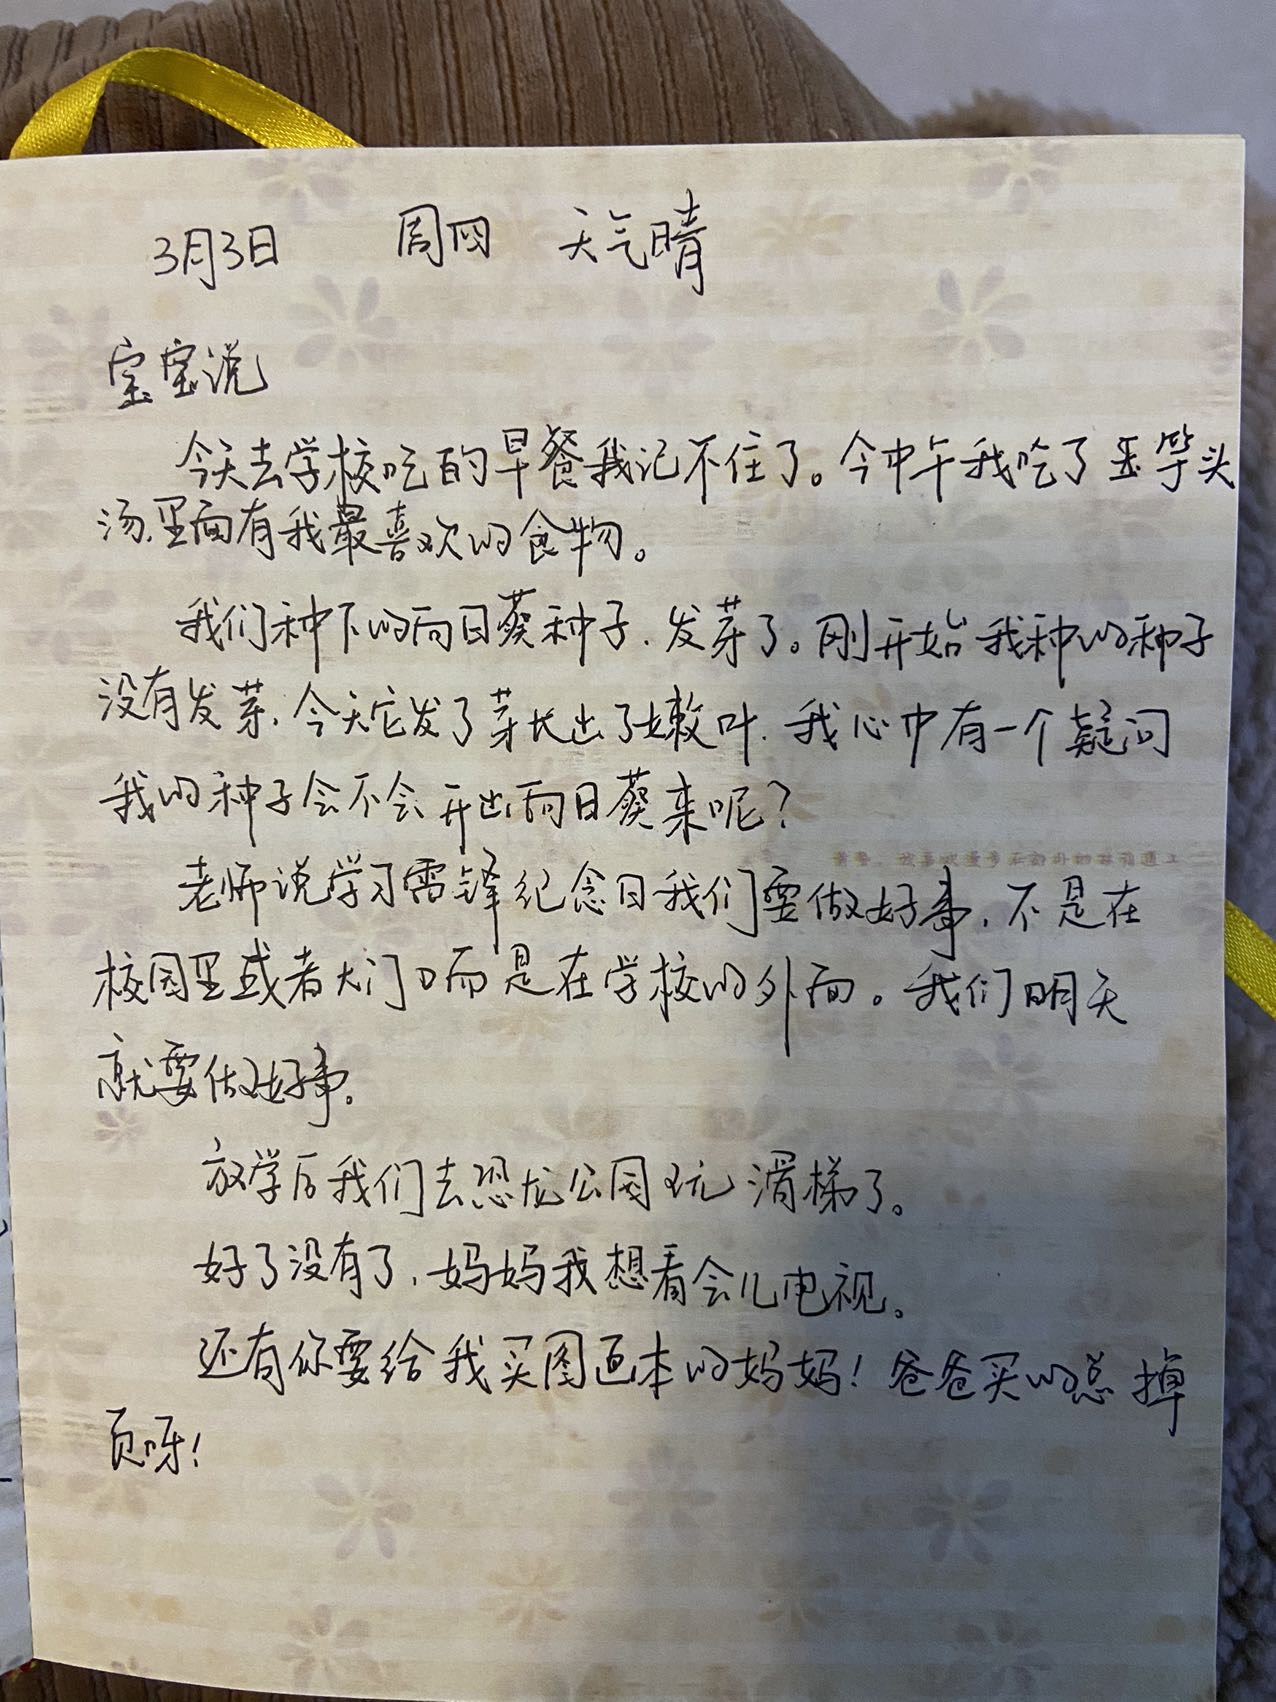 3月3日 周四 天气晴
宝宝说
今天去学校吃的早餐我记不住了。今中午我吃了玉芋头
汤,里面有我最喜欢的食物。
我们种下的向日葵种子,发芽了。刚开始我种的种子
没有发芽,今天它发了芽长出了嫩叶,我心中有一个疑问
我的种子会不会开出向日葵来呢?
老师说学习雷锋纪念日我们要做好事,不是在
校园里或者大门口而是在学校的外面。我们明天
就要做好事。
放学后我们去恐龙公园玩滑梯了。
好了没有了,妈妈我想看会儿电视。
还有你要给我买图画本的妈妈!爸爸买的总掉
页呀!